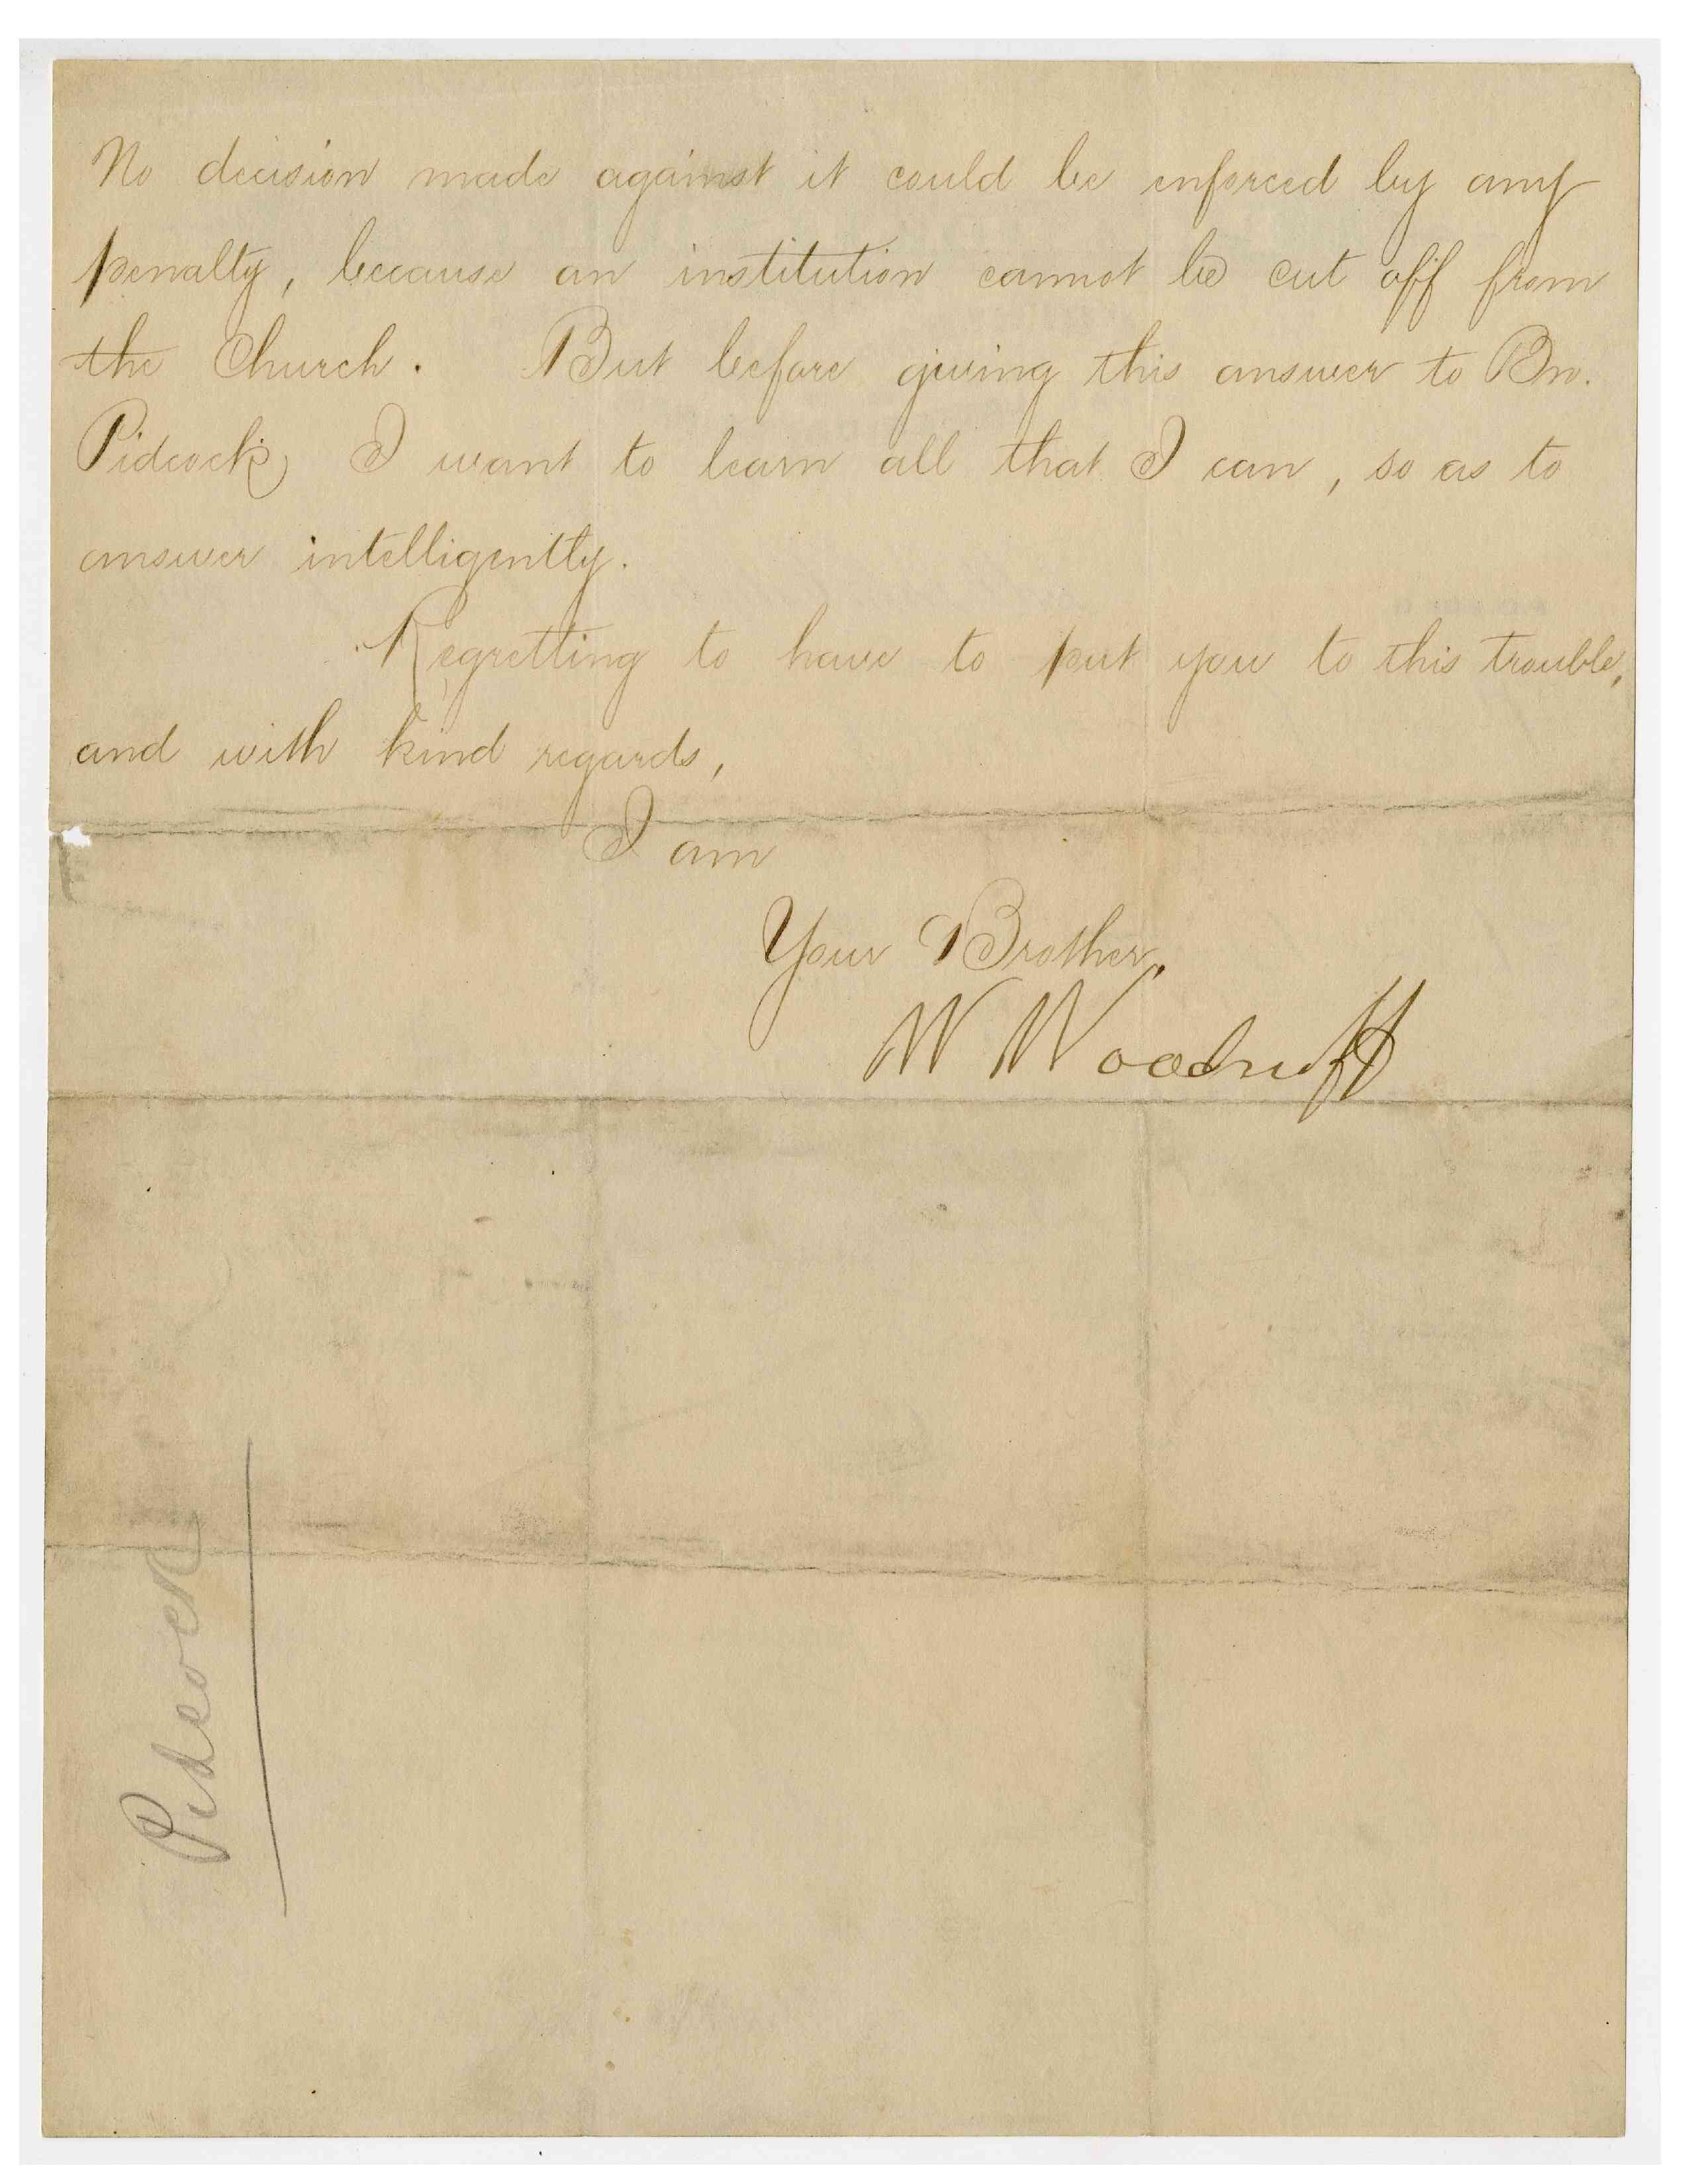 No decision made against it could be enforced by any
penalty, because an institution cannot be cut off from
the Church. But before giving this answer to Bro.
Pidcock, I want to learn all that I can, so as to
answer intelligently.
Regretting to have to put you to this trouble,
and with kind regards,
I am
Your Brother,
W Woodruff
Pidcock